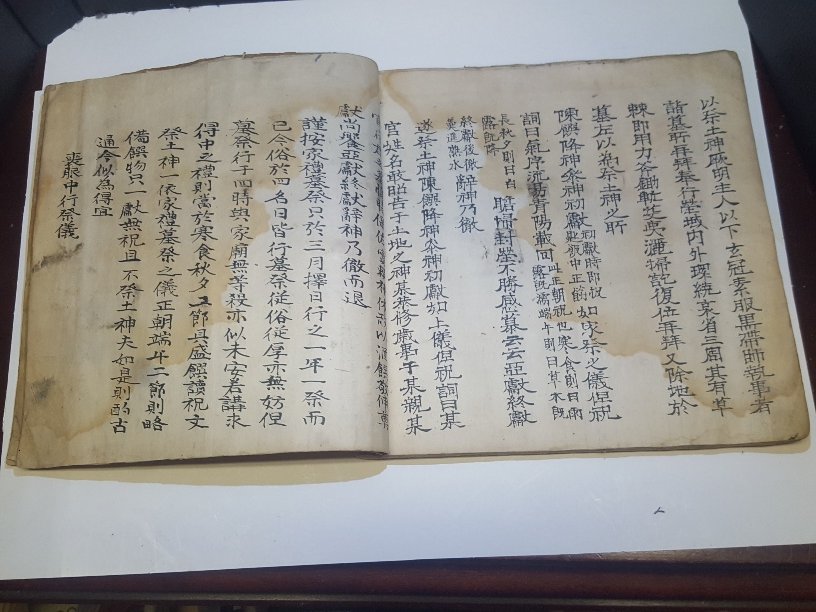 以祭土神厥明主人以下玄冠素服黑帶帥執事者
詣墓所再拜奉行塋域內外環繞哀省三周其有草
棘即用刀斧鋤斬芟夷灑掃訖復位再拜又除地於
墓左以爲祭土神之所
陳饌降神參神初獻初獻時即設匙楪中正筯如家祭之儀但祝
詞曰氣序流易青陽載回此正朝祝也寒食則曰雨露旣濡端午則曰草木旣
長秋夕則曰白露旣降瞻掃封塋不勝感慕云云亞獻終獻
終獻後徹羹進熟水辭神乃徹
遂祭土神陳饌降神參神初獻如上儀但祝詞曰某
官姓名敢昭告于土地之神某恭修歲事于某親某
以酒饌敬伸奠
獻尚饗亞獻終獻辭神乃徹而退
謹按家禮墓祭只於三月擇日行之一年一祭而
已今俗於四名日皆行墓祭從俗從厚亦無妨但
墓祭行于四時與家廟無等殺亦似未安若講求
得中之禮則當於寒食秋夕二節具盛饌讀祝文
祭土神一依家禮墓祭之儀正朝端午二節則略
備饌物只一獻無祝且不祭土神夫如是則酌古
通今似爲得宜
喪服中行祭儀